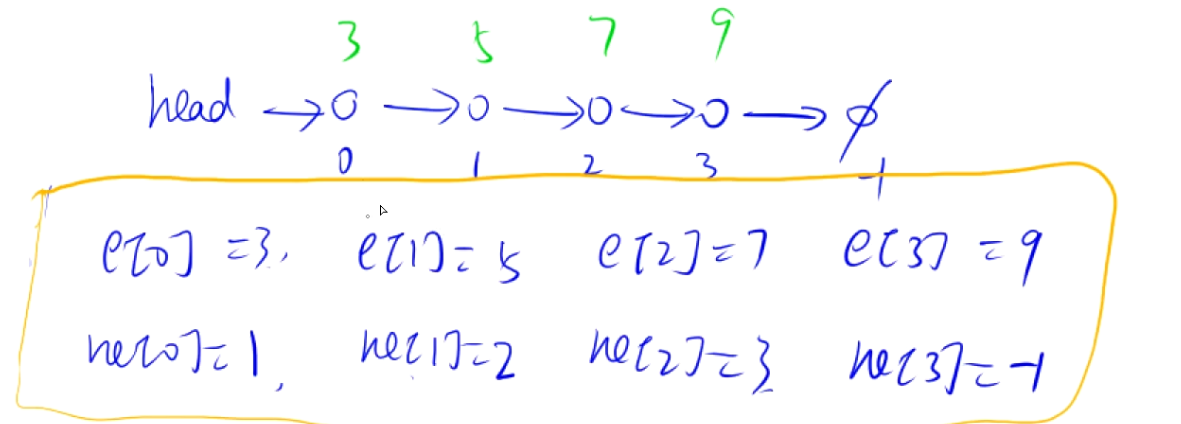 3 5 7 9
head → 0 → 0 → 0 → 0 → ∅
0 1 2 3 -1
e[0]=3, e[1]=5 e[2]=7 e[3]=9
ne[0]=1, ne[1]=2 ne[2]=3 ne[3]=-1